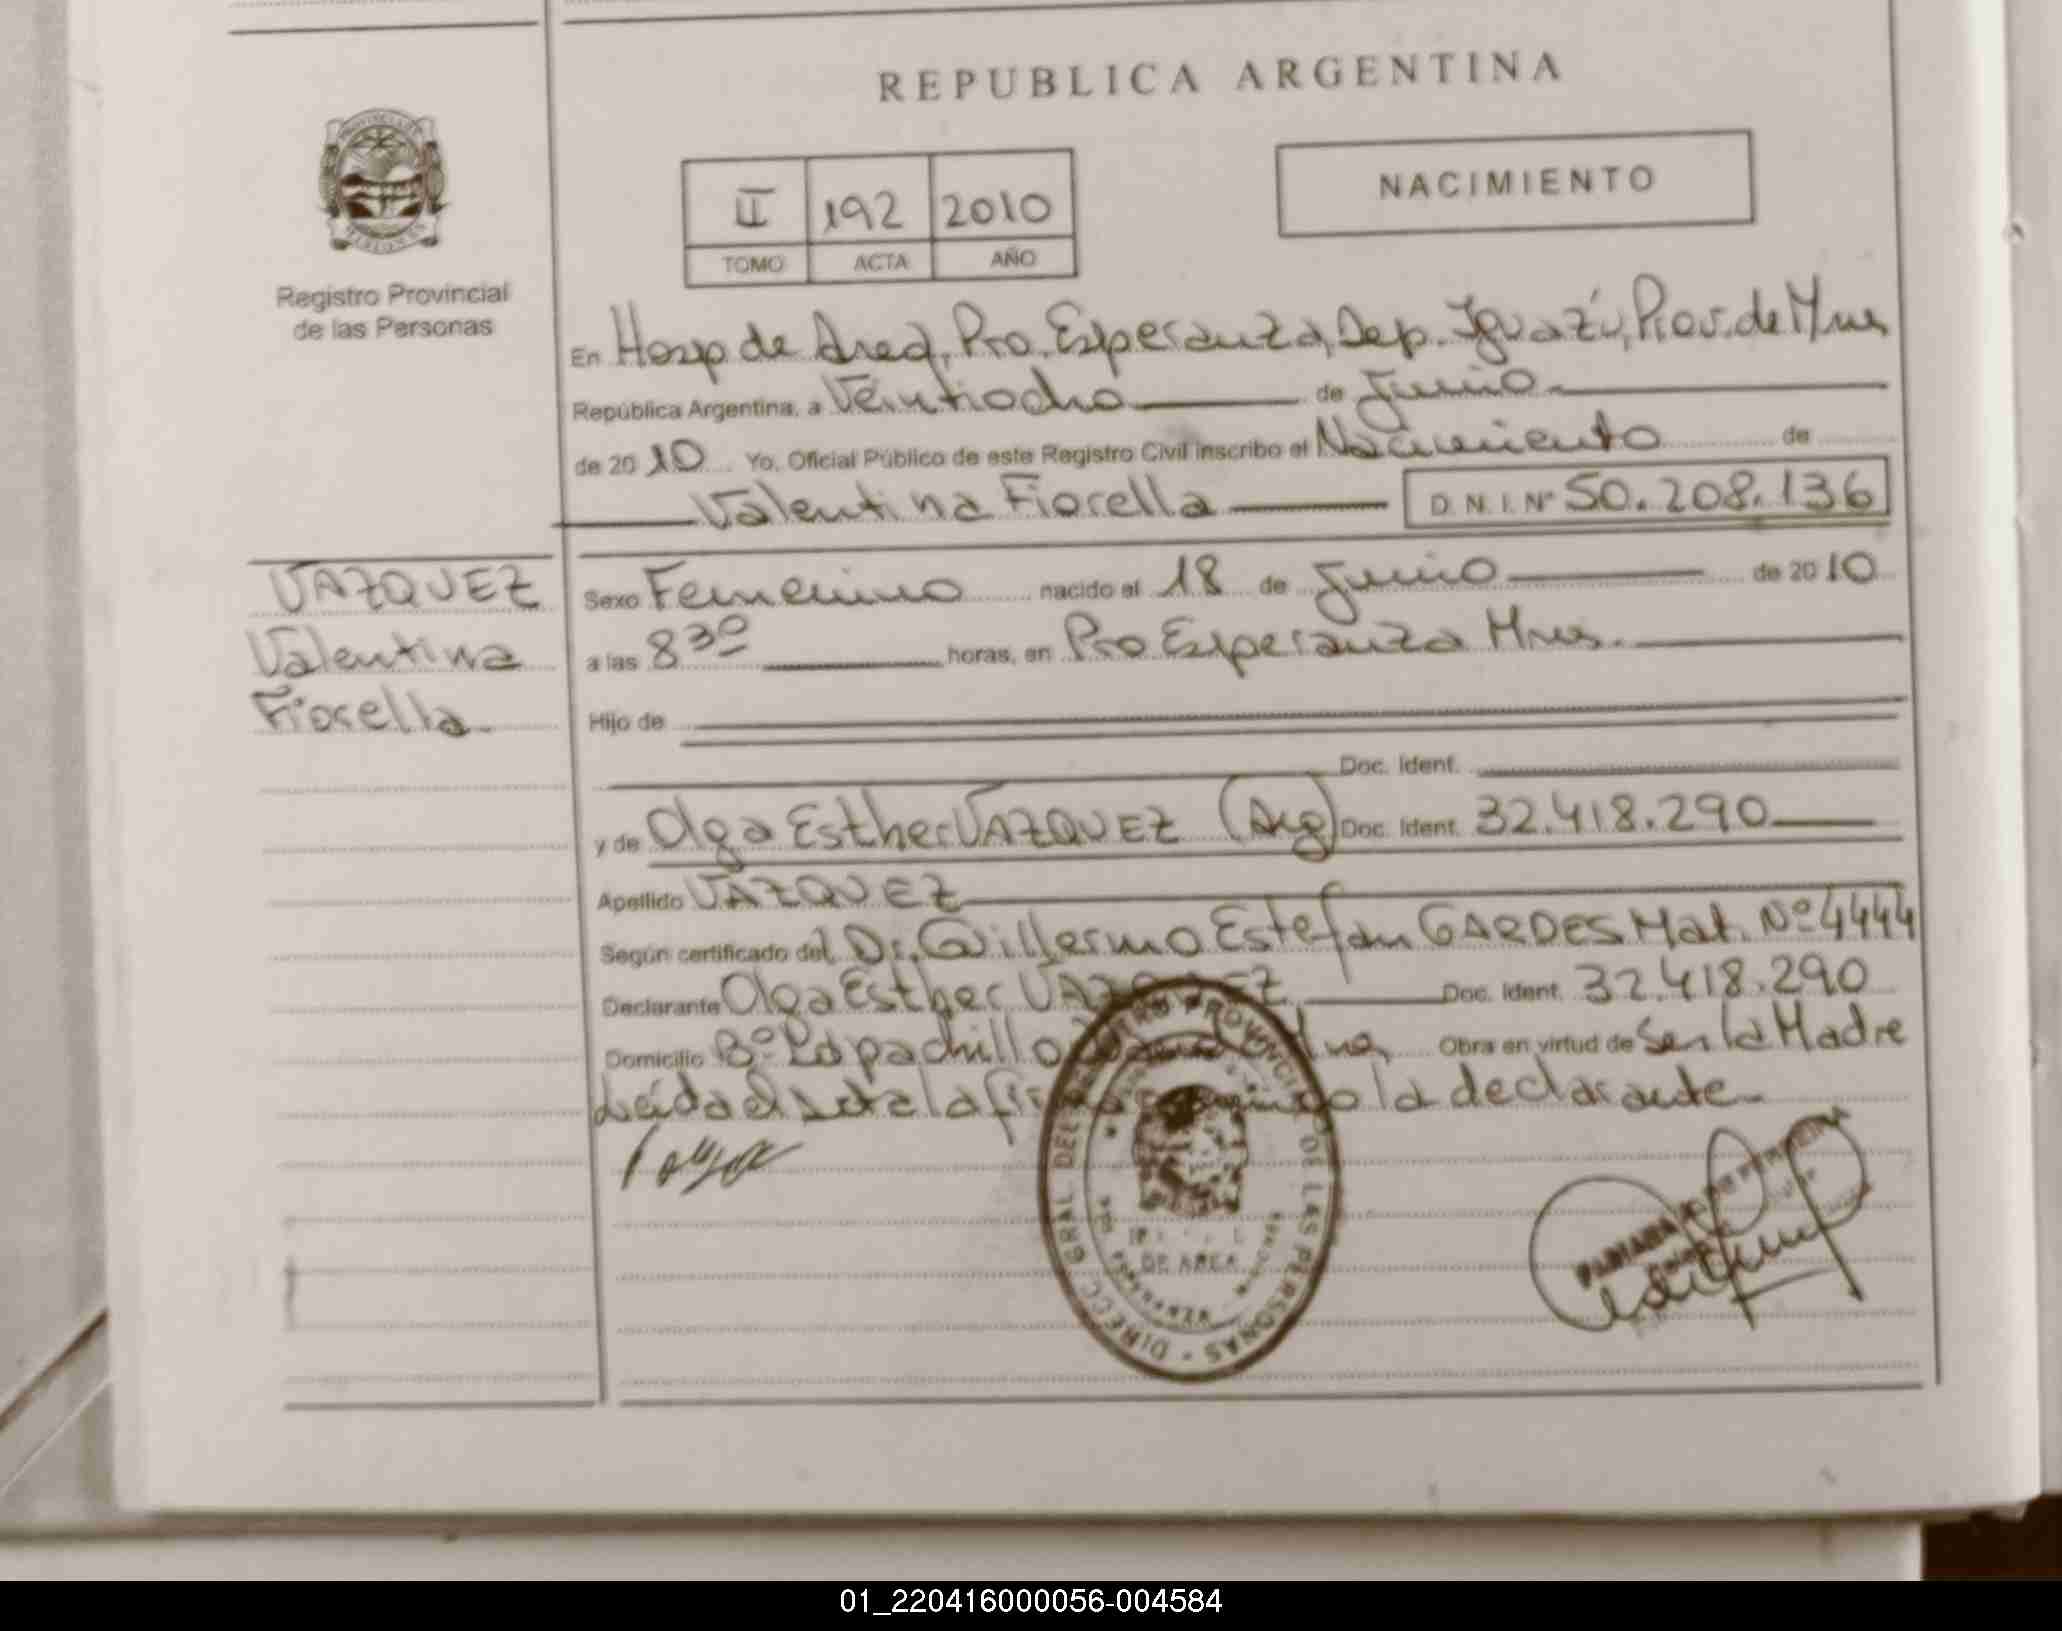 REPUBLICA ARGENTINA
NACIMIENTO
II 192 2010
TOMO ACTA AÑO
Registro Provincial
de las Personas
En Hosp de Area, Pto. Esperanza, Dep. Iguazú, Prov. de Mnes
República Argentina, a Veintiocho de Junio
de 2010 Yo, Oficial Público de este Registro Civil inscribo el Nacimiento de
Valentina Fiorella D.N.I. Nº 50.208.136
VAZQUEZ
Valentina
Fiorella
Sexo Femenino nacido el 18 de Junio de 2010
a las 8 30 horas, en Pto Esperanza Mnes.
Hijo de
Doc. Ident.
y de Olga Esther VAZQUEZ (Arg) Doc. Ident. 32.418.290
Apellido VAZQUEZ
Según certificado del Dr. Guillermo Estefan GARDES Mat. Nº 4444
Declarante Olga Esther VAZQUEZ Doc. Ident. 32.418.290
Domicilio Bº Obra en virtud de Ser la Madre
Leída el acta la la declarante
DIRECC. GRAL DEL REGISTRO PROVINCIAL DE LAS PERSONAS
DE AREA
01_220416000056-004584